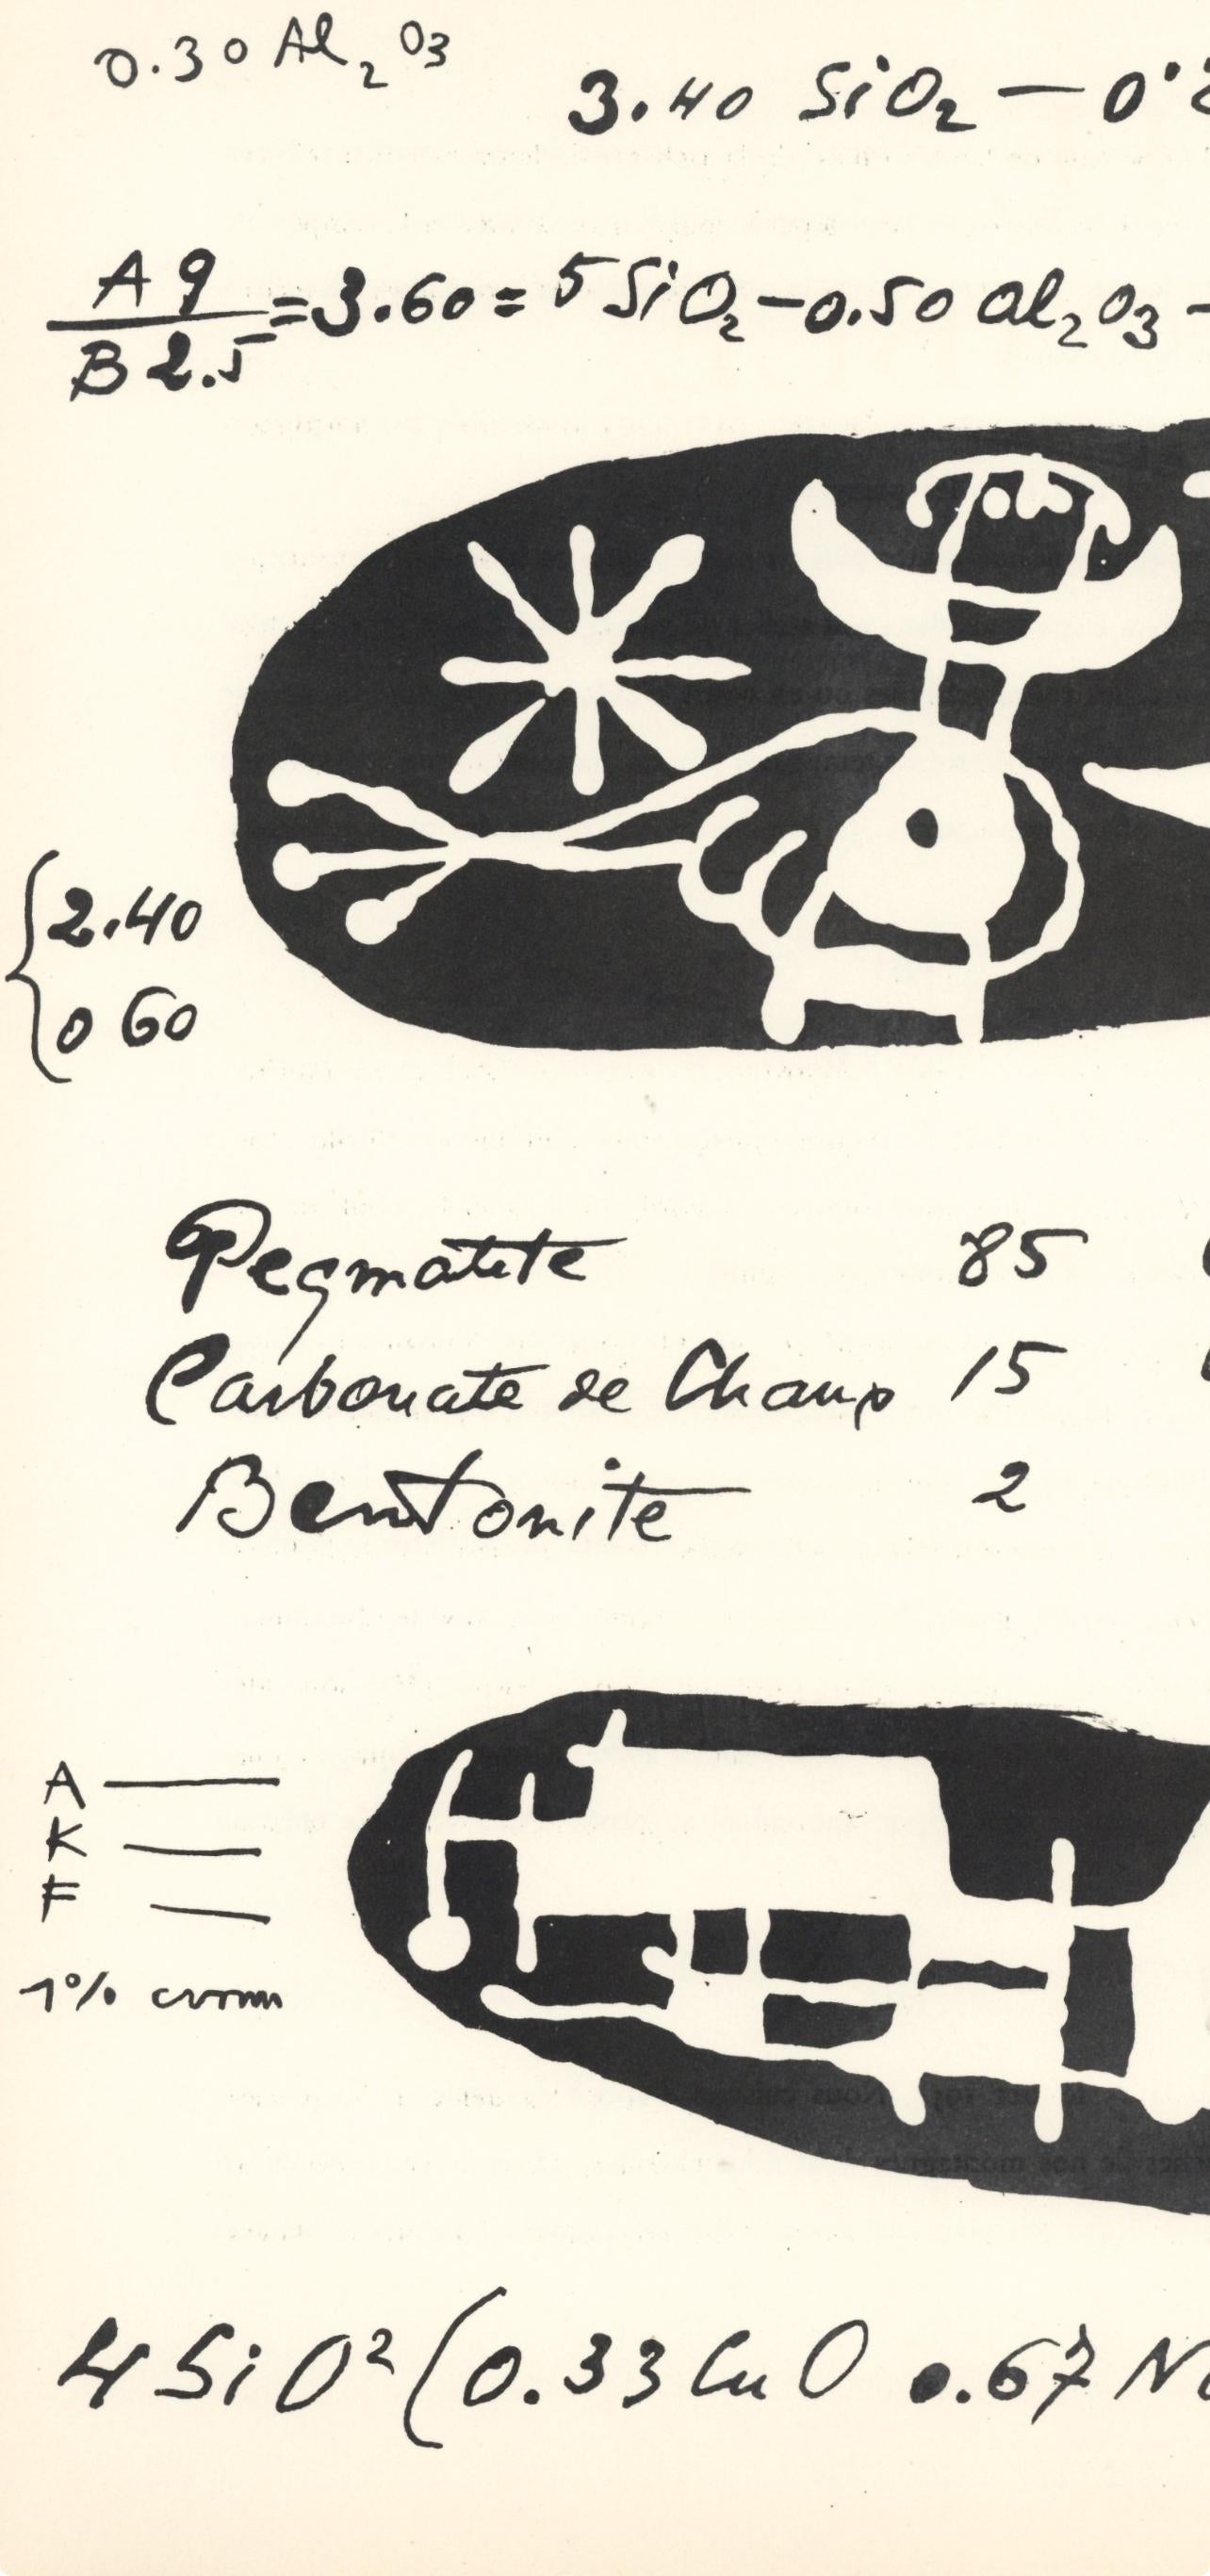 0.30 Al₂O₃
3.40 SiO₂ — 0.
A 9
B 2.5
= 3.60 = 5 SiO₂ – 0.50 Al₂O₃ –
2.40
0 60
Pegmatite 85
Carbonate de Chaux 15
Bentonite 2
A
K
F
1%
4 SiO² (0.33 CuO 0.67